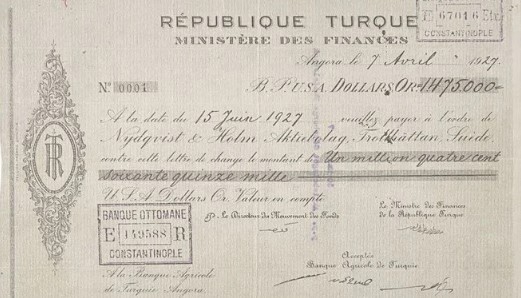 RÉPUBLIQUE TURQUE
MINISTÈRE DES FINANCES
E 67016 Etr.
CONSTANTINOPLE
Angora le 7 Avril 1927.
No 0001 B.P.U.S.A. DOLLARS OR 1475.000-
A la date du 15 Juin 1927 veuillez payer à l'ordre de
Nydqvist & Holm Aktiebolag, Trollhättan, Suède
contre cette lettre de change le montant de Un million quatre cent
soixante quinze mille
U.S.A Dollars Or. Valeur en compte
TR
BANQUE OTTOMANE
E 149588 R
CONSTANTINOPLE
Le Directeur du Mouvement des Fonds
Le Ministre des Finances
de la République Turque
Acceptée
Banque Agricole de Turquie
A la Banque Agricole
de Turquie Angora.